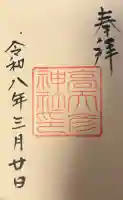 奉拜
高天彦
神社印
令和八年三月廿日